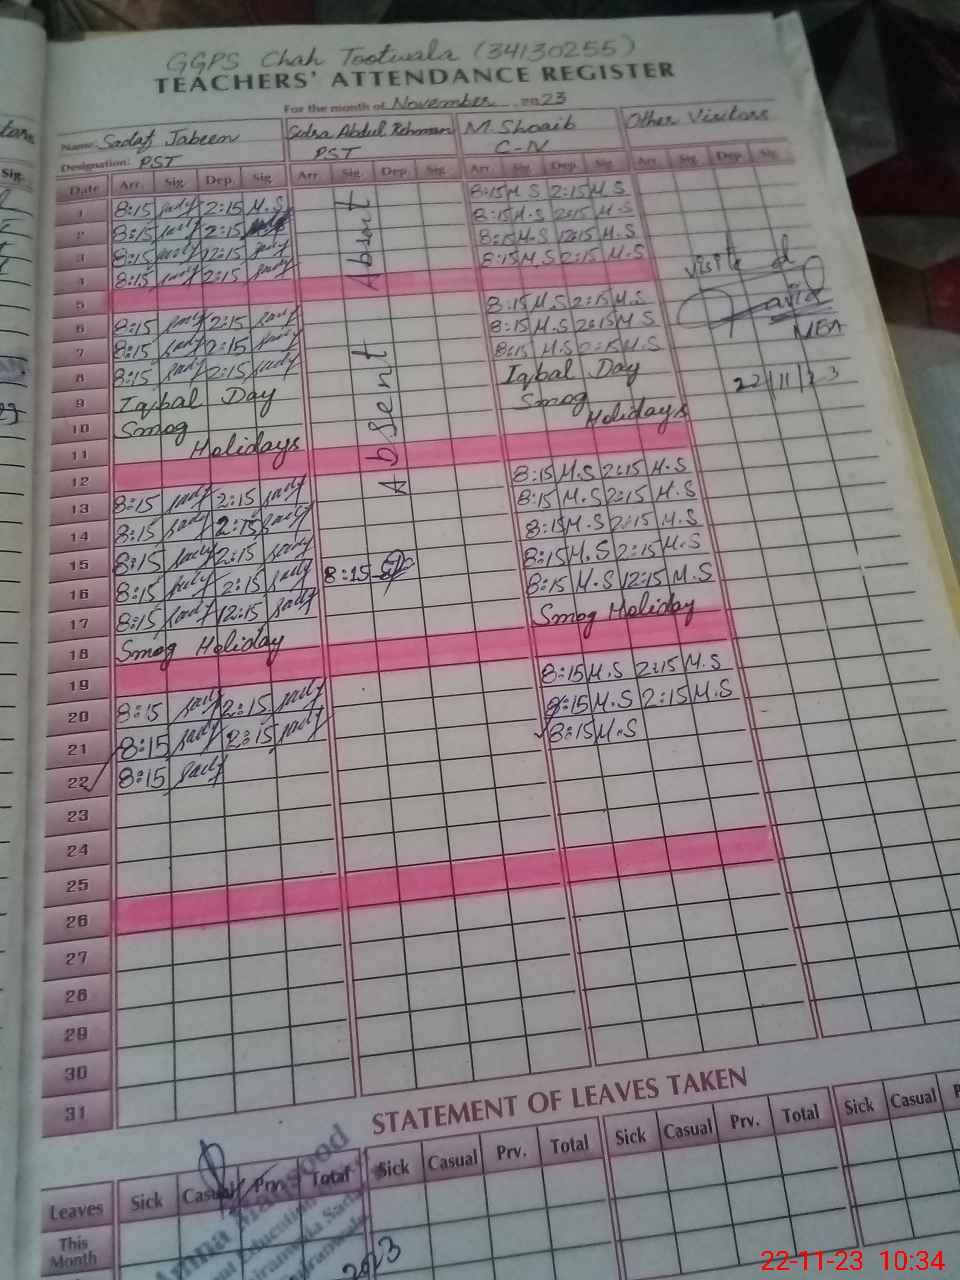 GGPS Chah Tootwala (34130255)
TEACHERS' ATTENDANCE REGISTER
For the month of November 2023
Name: Sadaf Jabeen Sidra Abdul Rehman M. Shoaib Other Visitors
Designation: PST PST C-IV
Date Arr. Sig. Dep. Sig. Arr. Sig. Dep. Sig. Arr. Sig. Dep. Sig. Arr. Sig. Dep. Sig.
1 8:15 sady 2:15 M.S Absent 8:15 M.S 2:15 M.S
2 8:15 sady 2:15 8:15 M.S 2:15 M.S
3 8:15 sady 12:15 sady 8:15 M.S 12:15 M.S
4 8:15 sady 2:15 sady 8:15 M.S 2:15 M.S
visited
5
6 8:15 sady 2:15 sady 8:15 M.S 2:15 M.S
7 8:15 sady 2:15 sady 8:15 M.S 2:15 M.S
8 8:15 sady 2:15 sady Absent 8:15 M.S 2:15 M.S
9 Iqbal Day Iqbal Day
22/11/23
10 Smog Smog
11 Holidays Holidays
12
13 8:15 sady 2:15 sady 8:15 M.S 2:15 M.S
14 8:15 sady 2:15 sady 8:15 M.S 2:15 M.S
15 8:15 sady 2:15 sady 8:15 M.S 2:15 M.S
16 8:15 sady 2:15 sady 8:15 8:15 M.S 2:15 M.S
17 8:15 sady 12:15 sady 8:15 M.S 12:15 M.S
18 Smog Holiday Smog Holiday
19
20 8:15 sady 2:15 sady 8:15 M.S 2:15 M.S
21 8:15 sady 2:15 sady 8:15 M.S 2:15 M.S
22 8:15 sady 8:15 M.S
23
24
25
26
27
28
29
30
31
STATEMENT OF LEAVES TAKEN
Leaves Sick Casual Prv. Total Sick Casual Prv. Total Sick Casual Prv. Total Sick Casual
This Month
22-11-23 10:34